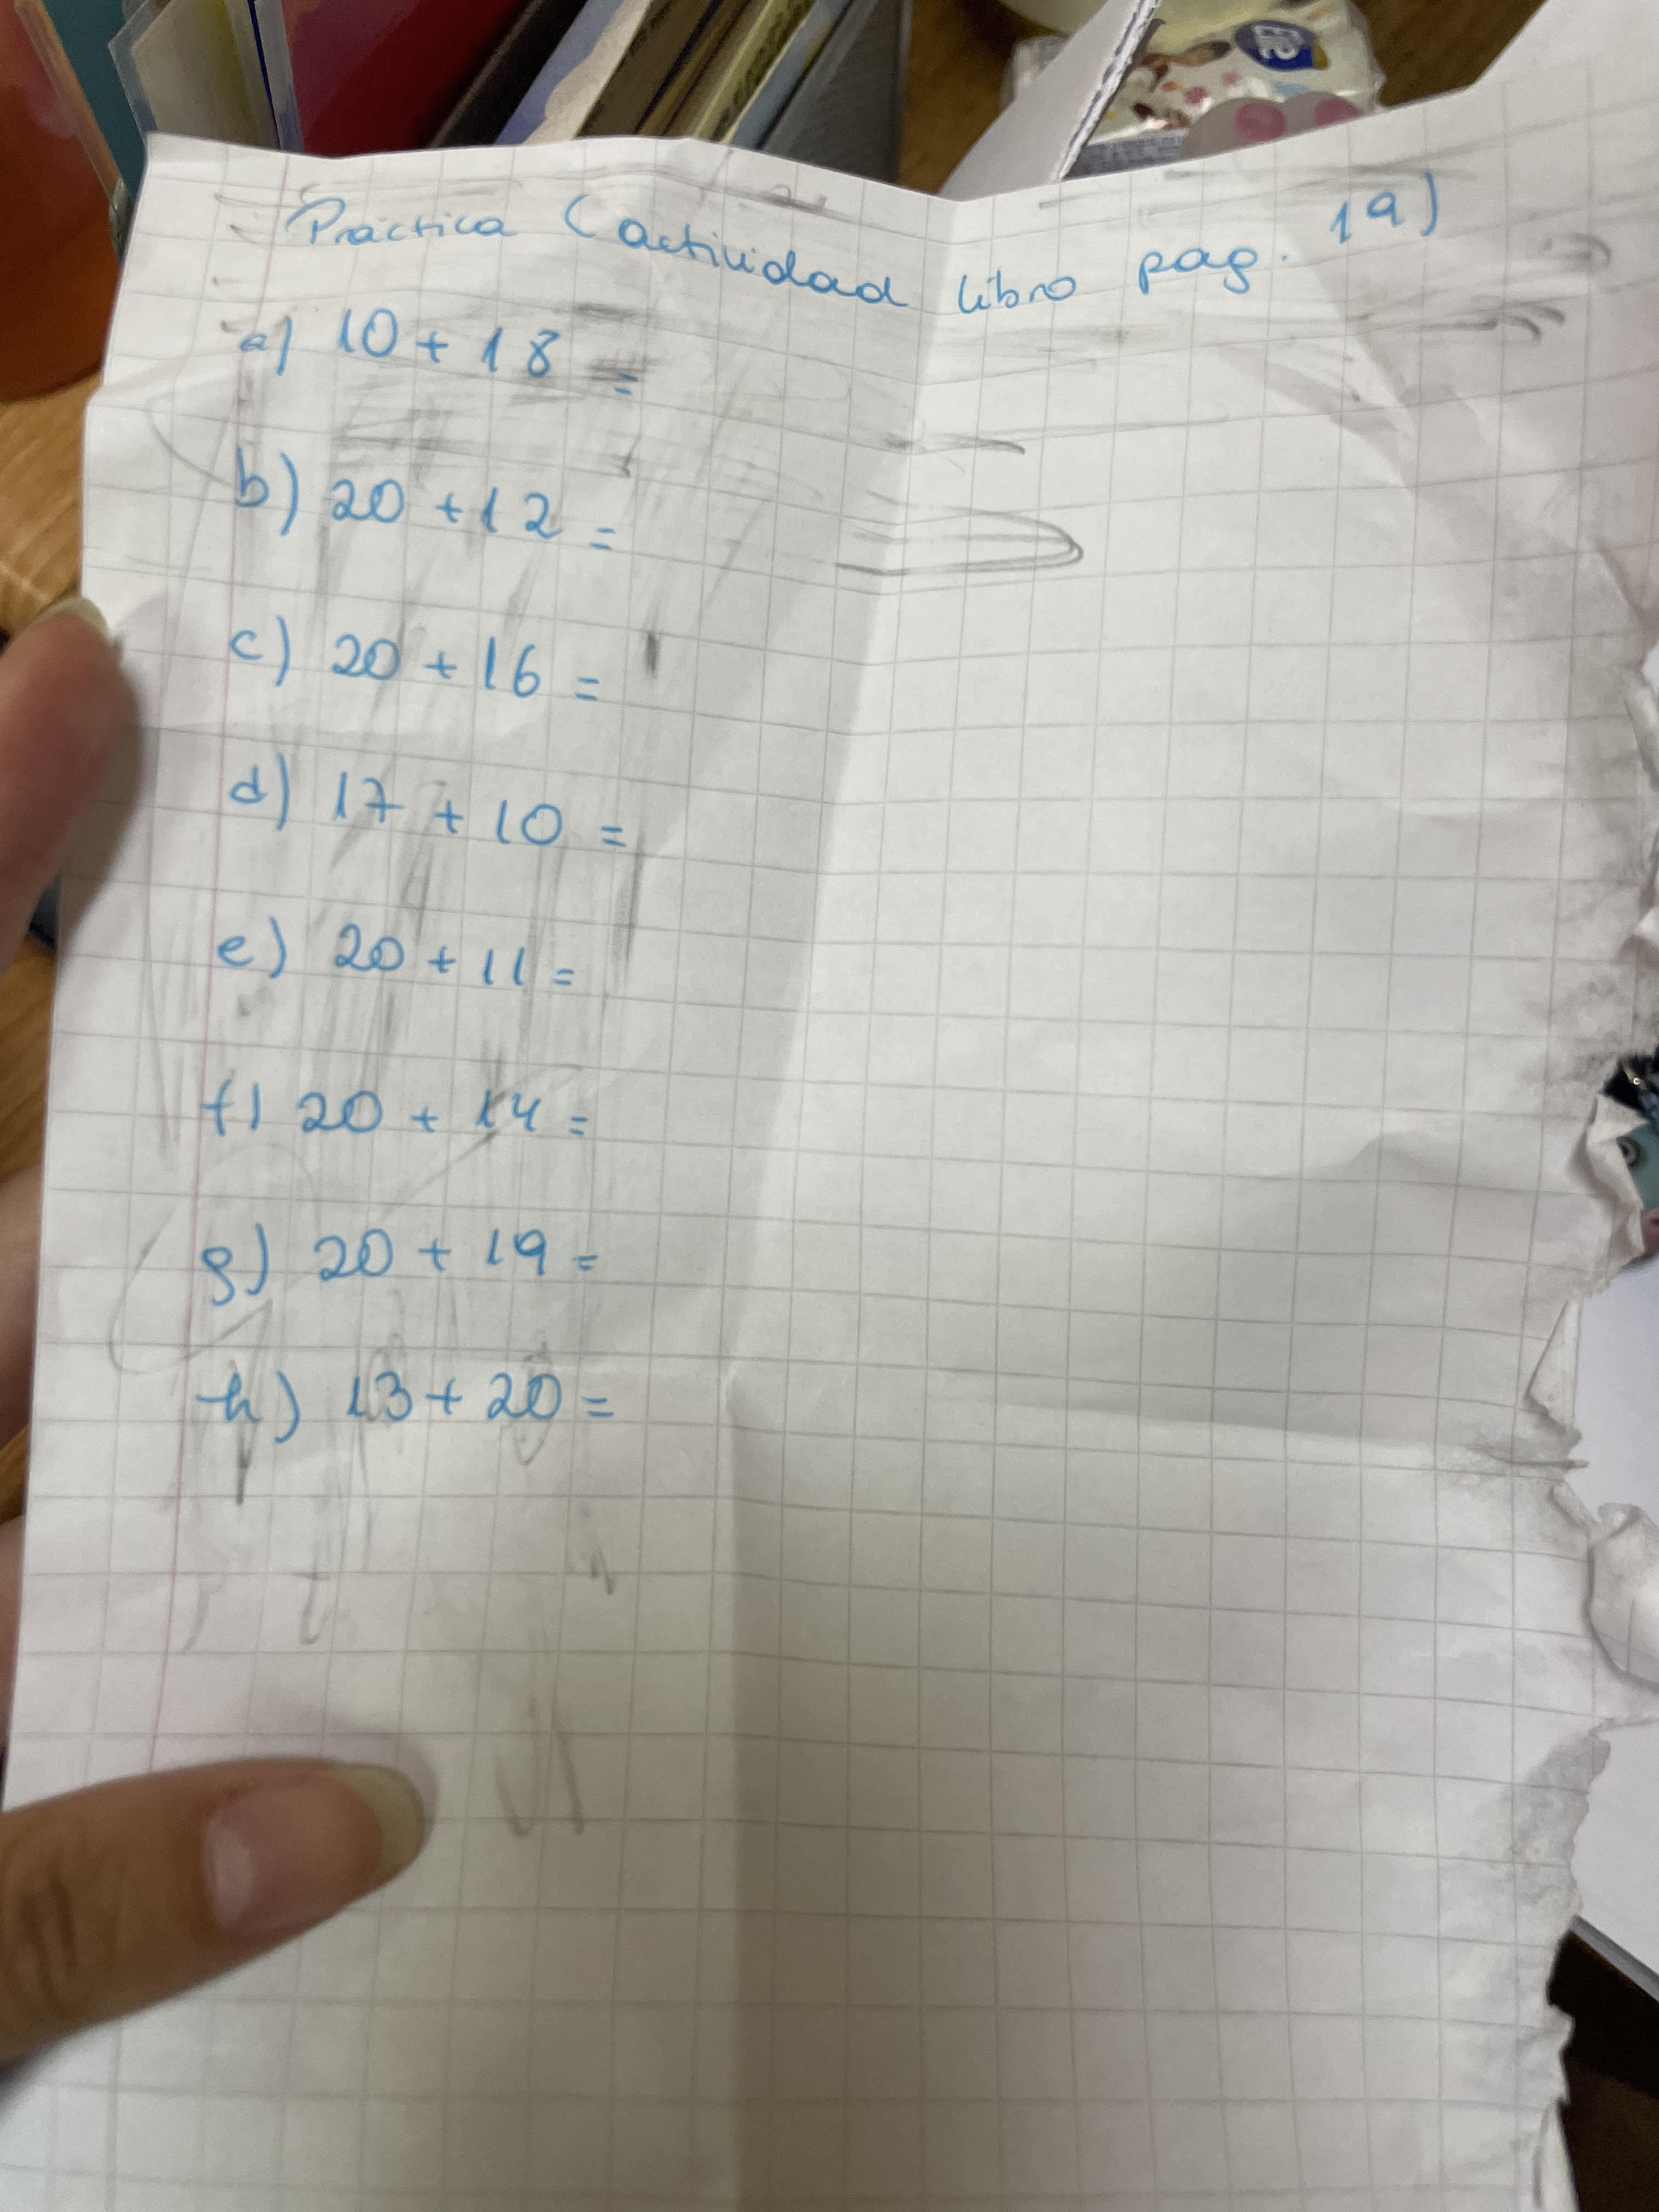 Práctica (actividad libro pag. 19)
a) 10 + 18 =
b) 20 + 12 =
c) 20 + 16 =
d) 17 + 10 =
e) 20 + 11 =
f) 20 + 14 =
g) 20 + 19 =
h) 13 + 20 =